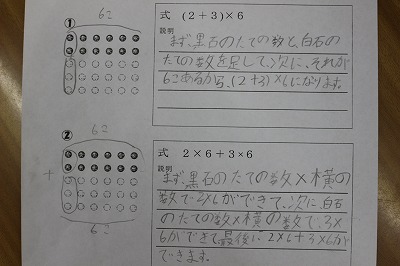 6こ
①
式 (2+3)×6
説明
まず、黒石のたての数と、白石の
たての数を足して、次に、それが
6こあるから、(2+3)×6になります。
6こ
②
+
6こ
式 2×6+3×6
説明
まず、黒石のたての数×横の
数で2×6ができて、次に白石
のたての数×横の数で、3×
6ができて最後に2×6+3×6が
できます。